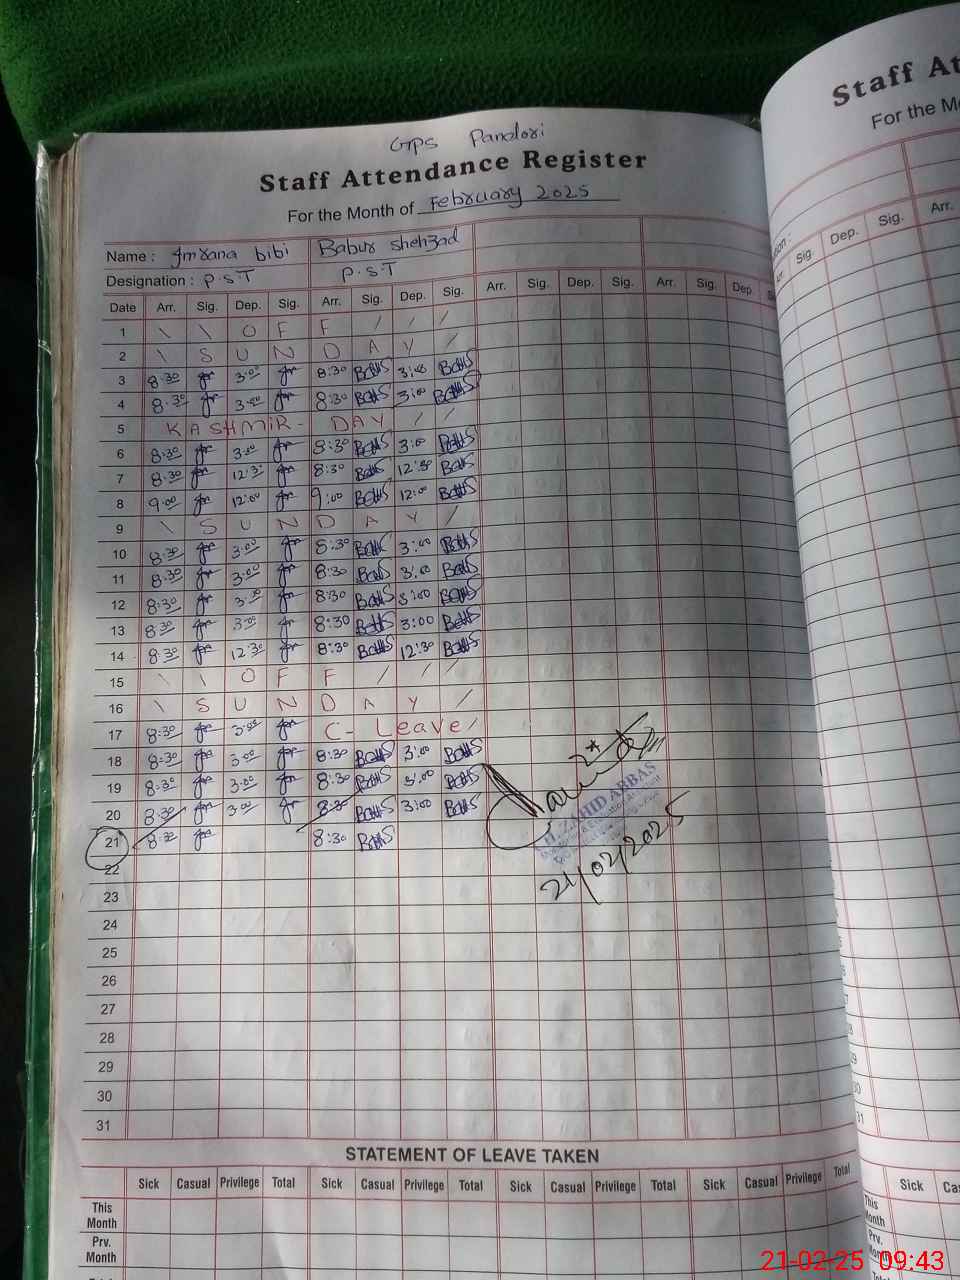 GPS Pandori
Staff Attendance Register
For the Month of February 2025
Name : Imrana bibi Babur shehzad
Designation : P.S.T P.S.T
Date Arr. Sig. Dep. Sig. Arr. Sig. Dep. Sig. Arr. Sig. Dep. Sig. Arr. Sig. Dep.
1 \ \ O F F / / /
2 \ S U N D A Y /
3 8:30 3:00 8:30 3:00
4 8:30 3:00 8:30 3:00
5 KASHMIR- DAY / /
6 8:30 3:00 8:30 3:00
7 8:30 12:30 8:30 12:30
8 9:00 12:00 9:00 12:00
9 \ S U N D A Y /
10 8:30 3:00 8:30 3:00
11 8:30 3:00 8:30 3:00
12 8:30 3:00 8:30 3:00
13 8:30 3:00 8:30 3:00
14 8:30 12:30 8:30 12:30
15 \ \ O F F / / /
16 \ S U N D A Y /
17 8:30 3:00 C- Leave /
18 8:30 3:00 8:30 3:00
19 8:30 3:00 8:30 3:00
20 8:30 3:00 8:30 3:00
21 8:30 8:30
ZAHID ABBAS
21/02/2025
22
23
24
25
26
27
28
29
30
31
STATEMENT OF LEAVE TAKEN
Sick Casual Privilege Total Sick Casual Privilege Total Sick Casual Privilege Total Sick Casual Privilege Total
This Month
Prv. Month
Staff At
For the Mo
Sig. Dep. Sig. Arr.
Sick Ca
This Month
21-02-25 09:43